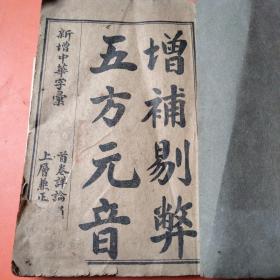 增補剔弊
五方元音
新增中華字彙
首卷詳論
上層兼正